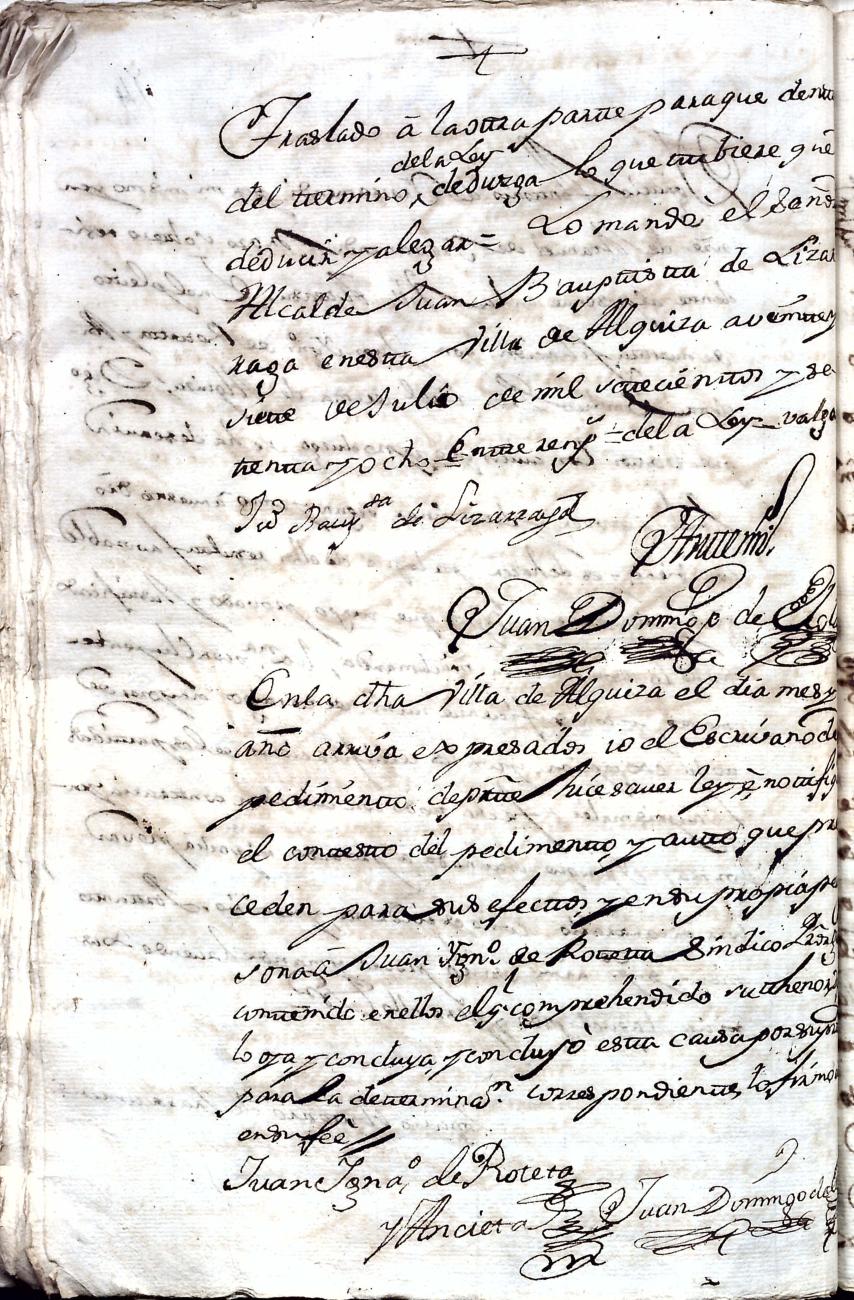 Traslado â la otra parte para que dentro
de la Ley
del termino deduzga lo que tubiere que
deducir y alegar = Lo mandò el Señor
Alcalde Juan Bauptista de Lizar
raga en esta Villa de Alquiza a veinte y
siette de Julio de mil settecientos y se
tenta y ocho = Entre rens = de la Ley = valga
Juº Baupta de Lizarraga
Antemi
Juan Domingo de
En la dha Villa de Alquiza el dia mes y
año arriva expresados io el Escrivano de
pedimento de prte hice saver ley è notifiq
el contesto del pedimento, y auto que pre
ceden para sus efectos, y en su propia per
sona â Juan Ignº de Roteta Sindico
contenido en ellos el q comprehendido su thenor
lo oya, y concluya, y concluyò esta causa por su p
para la determinan correspondiente lo firmò
en su feè
Juan Ignaº de Roteta
y Ancieta Juan Domingo de